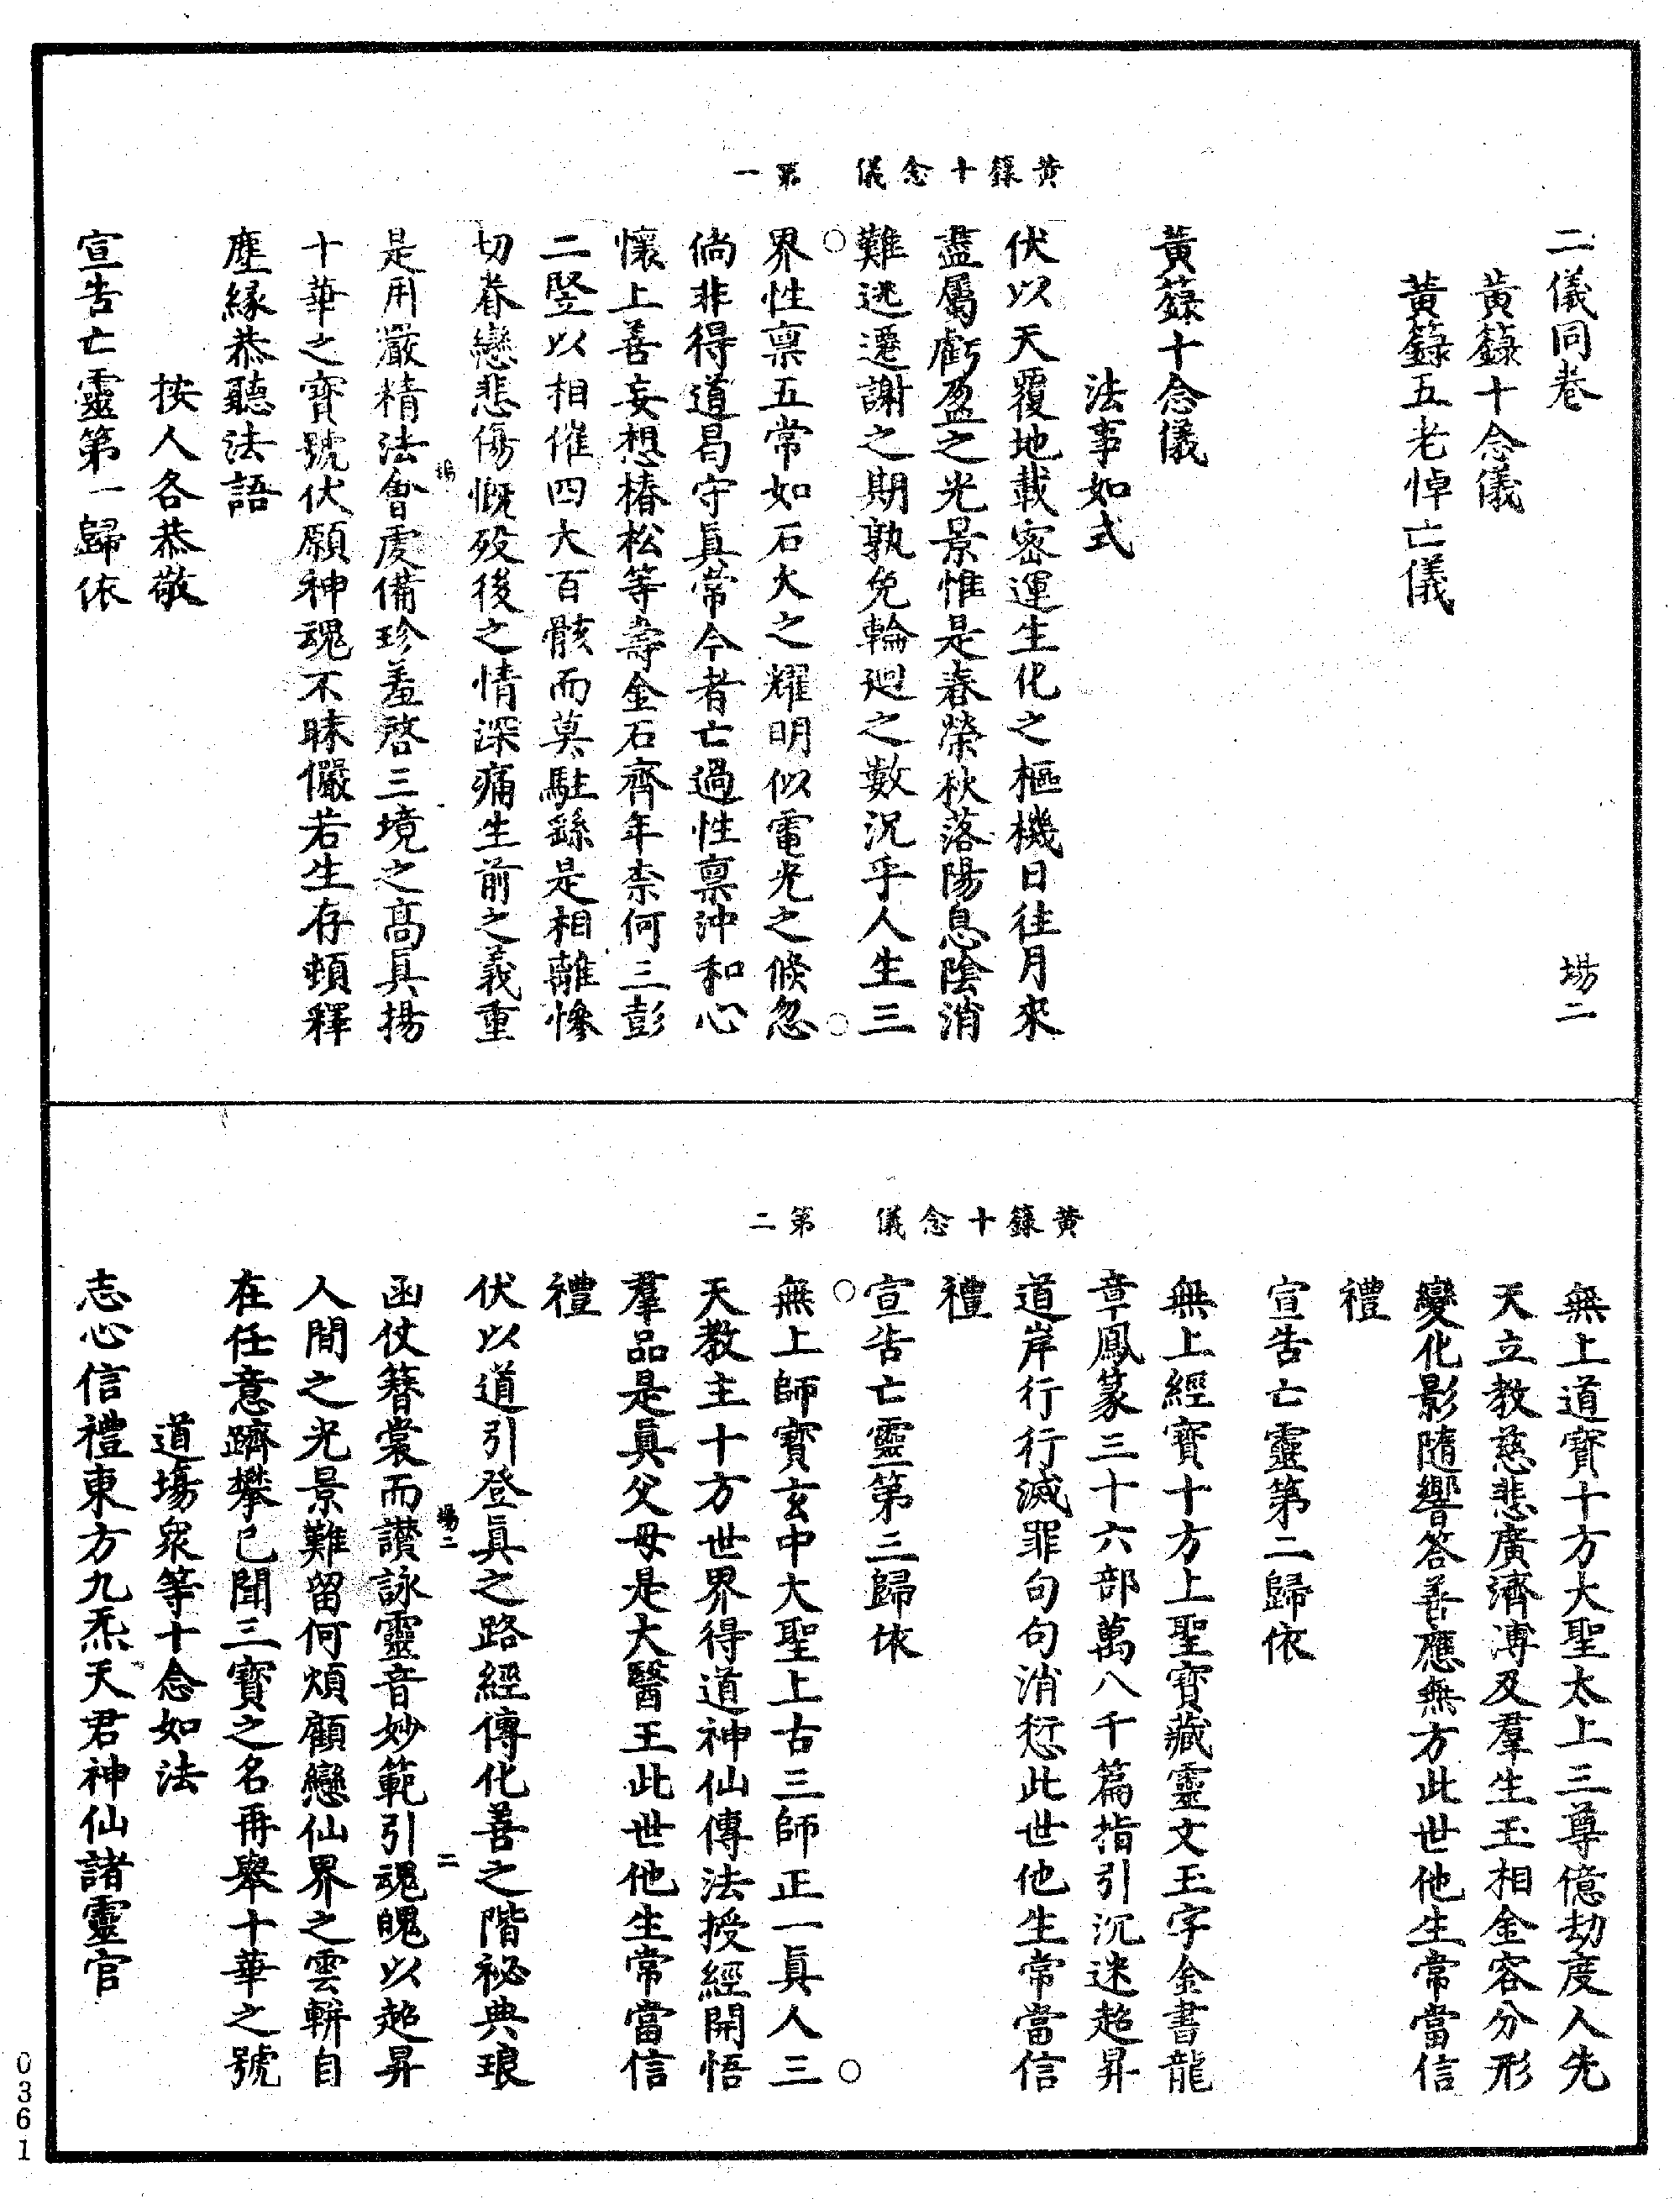 二儀同卷　場二
黃籙十念儀
黃籙五老悼亡儀
黃籙十念儀
法事如式
伏以天覆地載密運生化之樞機日往月來
盡屬虧盈之光景惟是春榮秋落陽息陰消
難逃遷謝之期孰免輪迴之數況乎人生三
黃籙十念儀　第一
界性稟五常如石火之耀明似電光之倏忽
倘非得道曷守眞常今者亡過性稟沖和心
懷上善妄想椿松等壽金石齊年柰何三彭
二竪以相催四大百骸而莫駐繇是相離慘
切眷戀悲傷慨歿後之情深痛生前之義重
是用嚴精法會虔備珍羞啓三境之高眞揚
十華之寶號伏願神魂不昧儼若生存頓釋
塵緣恭聽法語
按人各恭敬
宣告亡靈第一歸依
無上道寶十方大聖太上三尊億劫度人先
天立教慈悲廣濟溥及羣生玉相金容分形
變化影隨響答善應無方此世他生常當信
禮
宣告亡靈第二歸依
無上經寶十方上聖寶藏靈文玉字金書龍
章鳳篆三十六部萬八千篇指引沉迷超昇
道岸行行滅罪句句消愆此世他生常當信
禮
宣告亡靈第三歸依
黃籙十念儀　第二
無上師寶玄中大聖上古三師正一眞人三
天教主十方世界得道神仙傳法授經開悟
羣品是眞父母是大醫王此世他生常當信
禮
伏以道引登眞之路經傳化善之階祕典琅
函仗簪裳而讃詠靈音妙範引魂魄以超昇
場二　二
人間之光景難留何煩顧戀仙界之雲軿自
在任意躋攀已聞三寶之名再舉十華之號
道場衆等十念如法
志心信禮東方九炁天君神仙諸靈官
0361